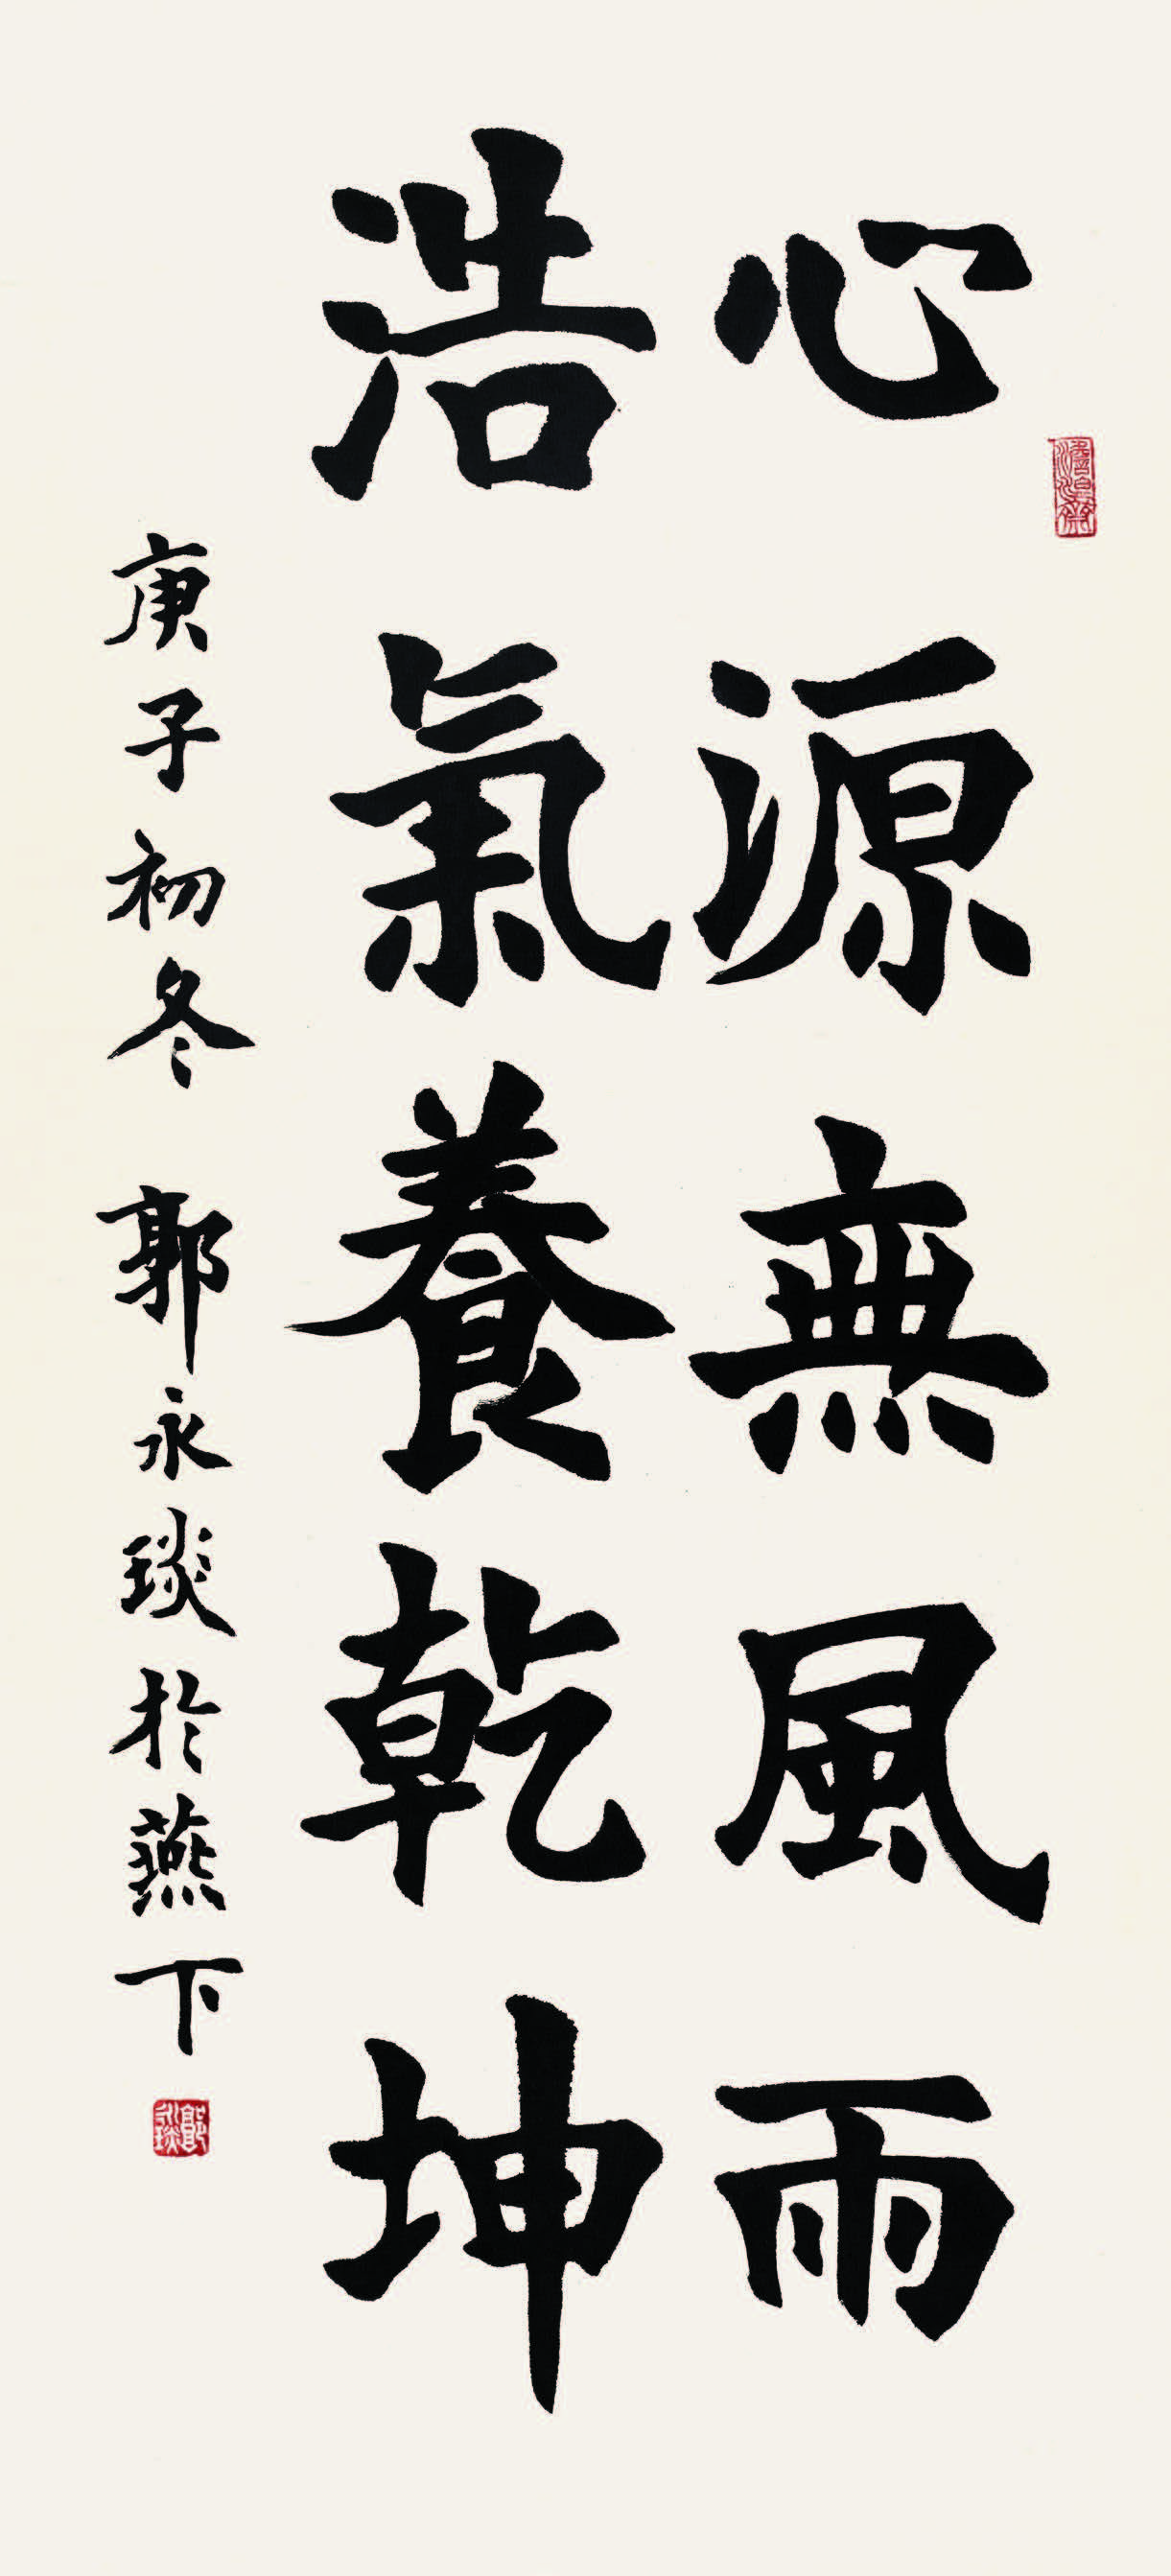 心源無風雨
浩氣養乾坤
庚子初冬 郭永琰於燕下